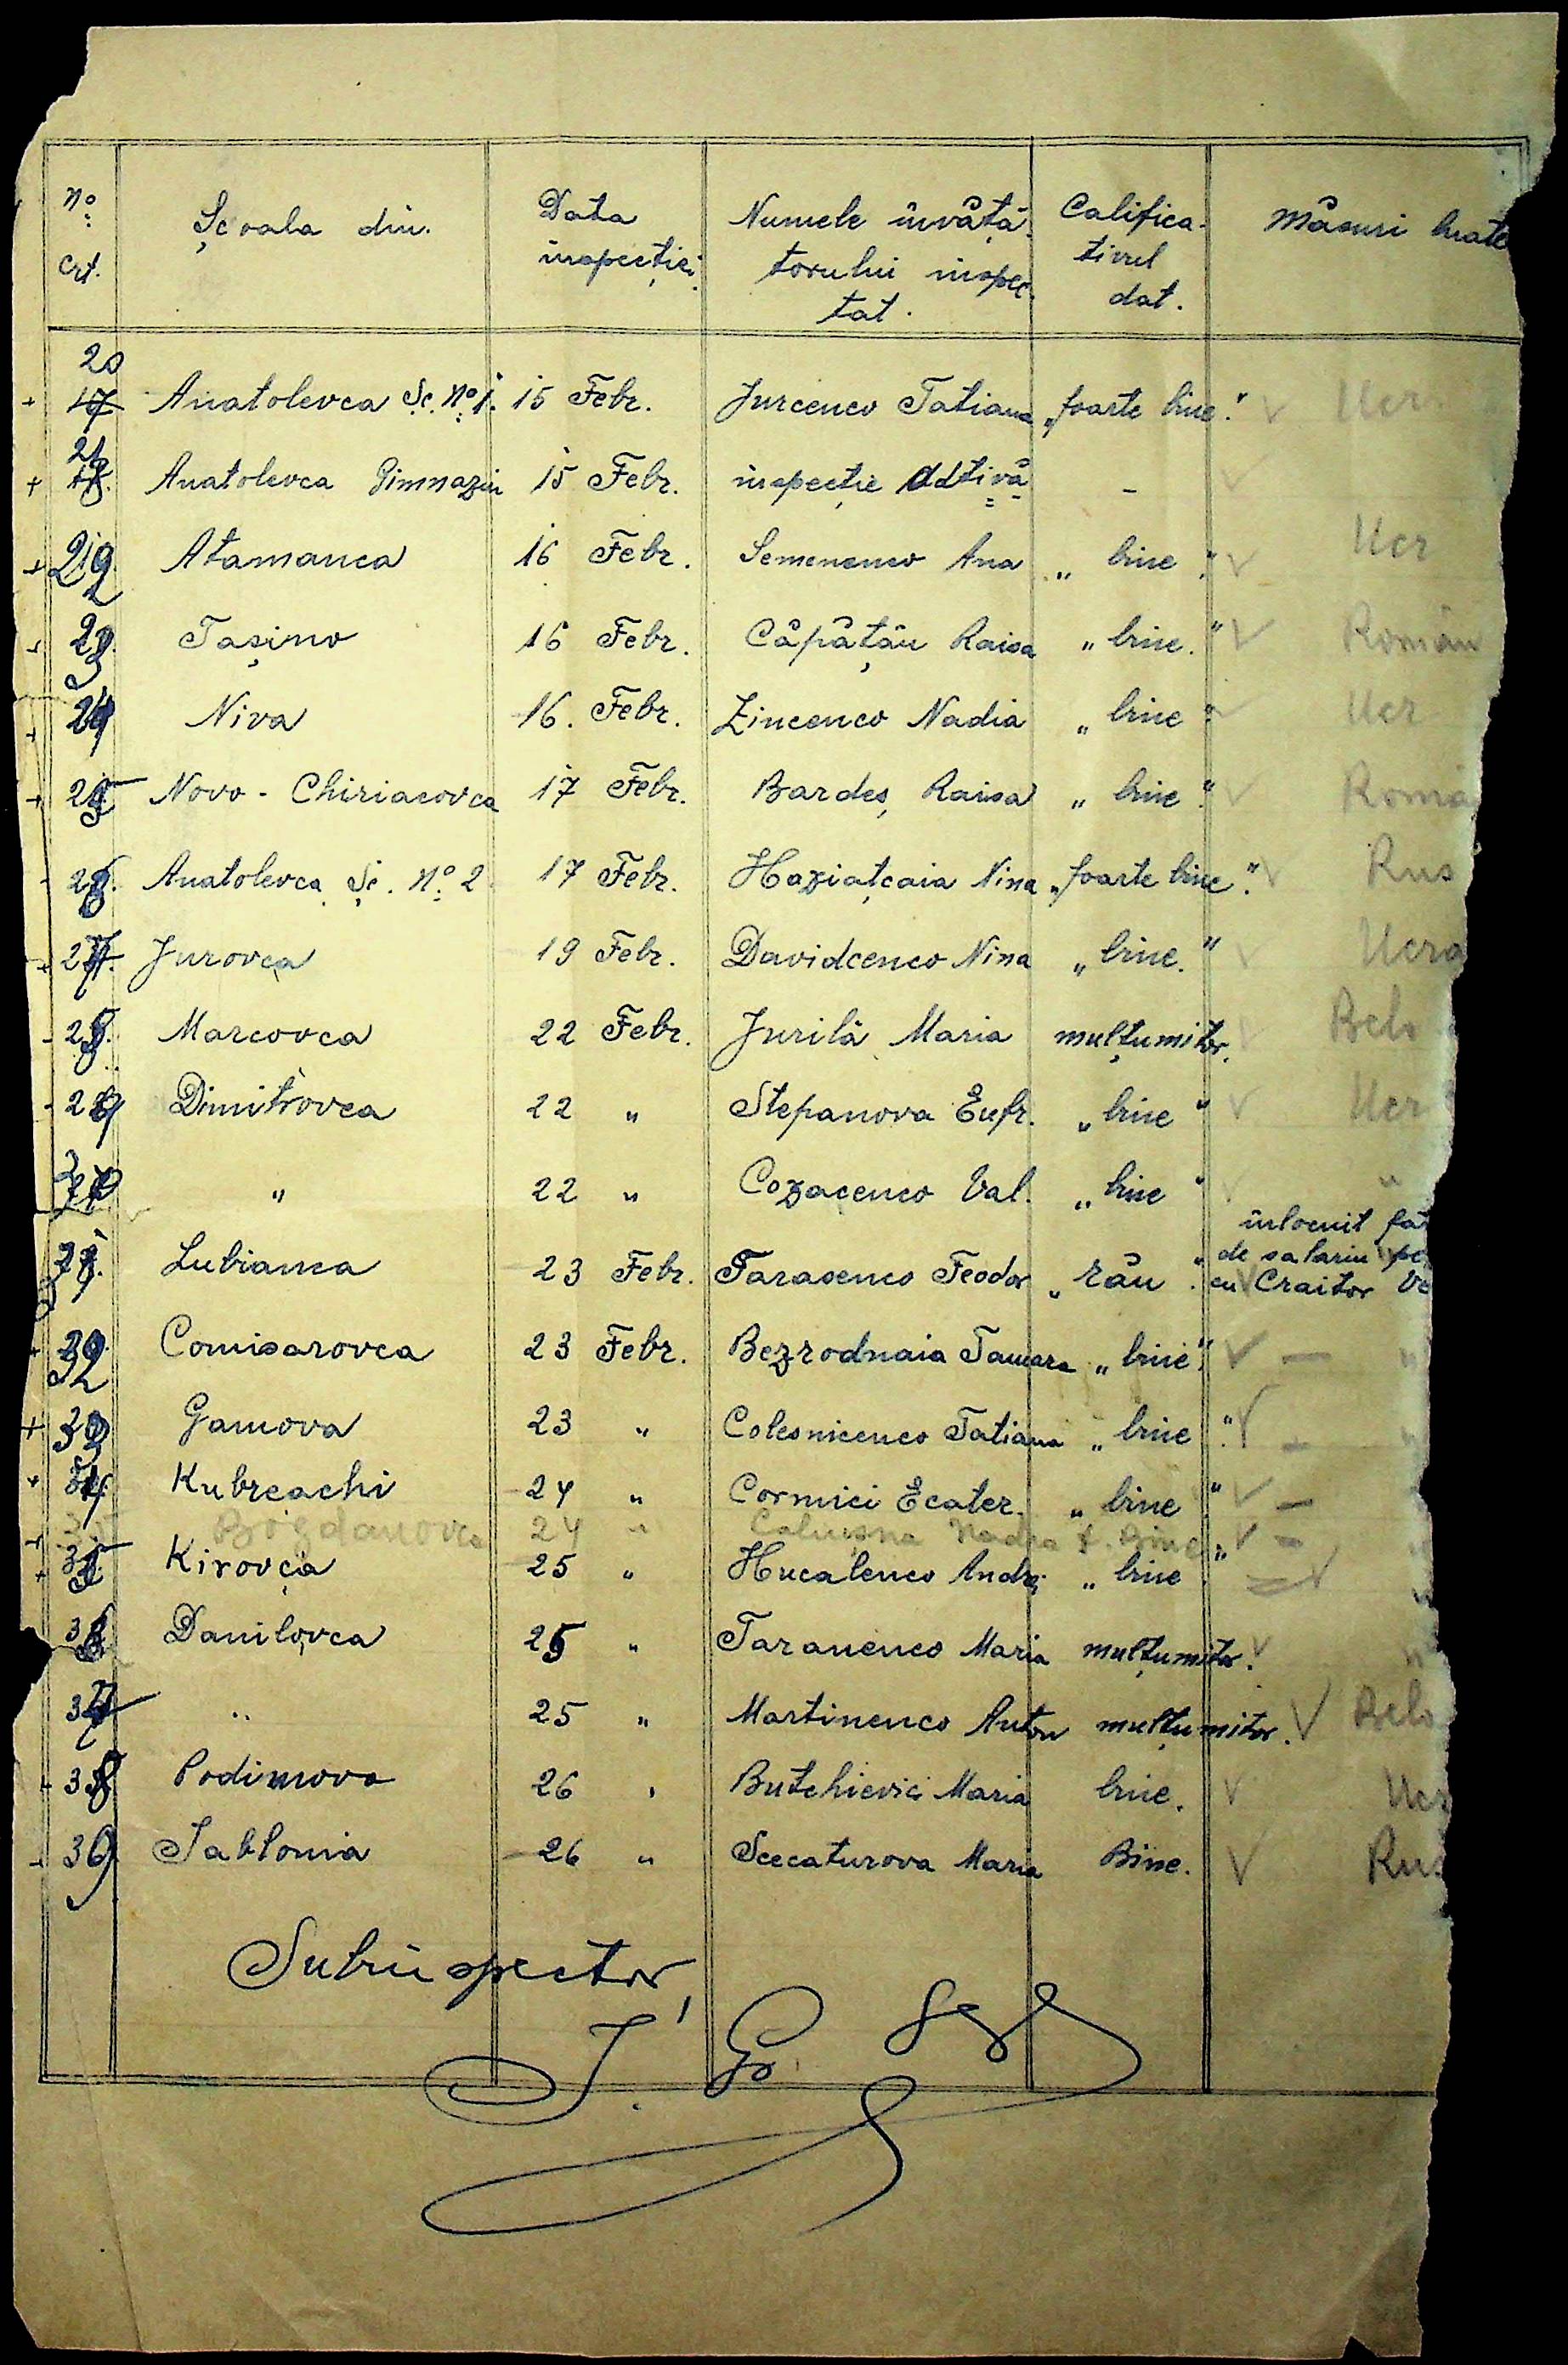 No crt. Școala din. Data inspecției Numele învăță- torului inspec- tat. Califica- tivul dat. Măsuri luate
20 17 Anatolevca Șc. No 1. 15 Febr. Jurcenco Tatiana „foarte bine." Ucr
21 18. Anatolevca Gimnaziu 15 Febr. inspecție Adtivă -
22 Atamanca 16 Febr. Semenenco Ana „bine." Ucr
23 Tașino 16 Febr. Căpățân Raisa „bine." Român
24 Niva 16. Febr. Zincenco Nadia „bine." Ucr
25 Novo-Chiriacovca 17 Febr. Bardeș Raisa „bine." Româ
26. Anatolevca Șc. No 2 17 Febr. Hoziațcaia Nina „foarte bine." Rus
27. Jurovca 19 Febr. Davidcenco Nina „bine." Ucra
28. Marcovca 22 Febr. Jurilă Maria mulțumitor. Belo
29 Dimitrovca 22 " Stepanova Eufr. „bine" Ucr
" 22 " Cozacenco Val. „bine" "
înlocuit făr
31. Lubianca 23 Febr. Tarasenco Feodor „rău." de salariu pe
cu Craitor Ve
32 Comisarovca 23 Febr. Bezrodnaia Tamara „bine." — "
33 Gamova 23 " Colesnicenco Tatiana „bine." - "
34 Kubreachi 24 " Cormici Ecater. „bine." - 
35 Bogdanovca 24 " Nadia f. Bine - "
Kirovca 25 " Hucalenco Andrei „bine." "
36 Danilovca 25 " Taranenco Maria mulțumitor. "
37 " 25 " Martinenco Anton mulțumitor. Belo
38 Podimova 26 " Butchievici Maria bine. Ucr
39 Iablonia 26 " Scecaturova Maria Bine. Rus
Subinspector,